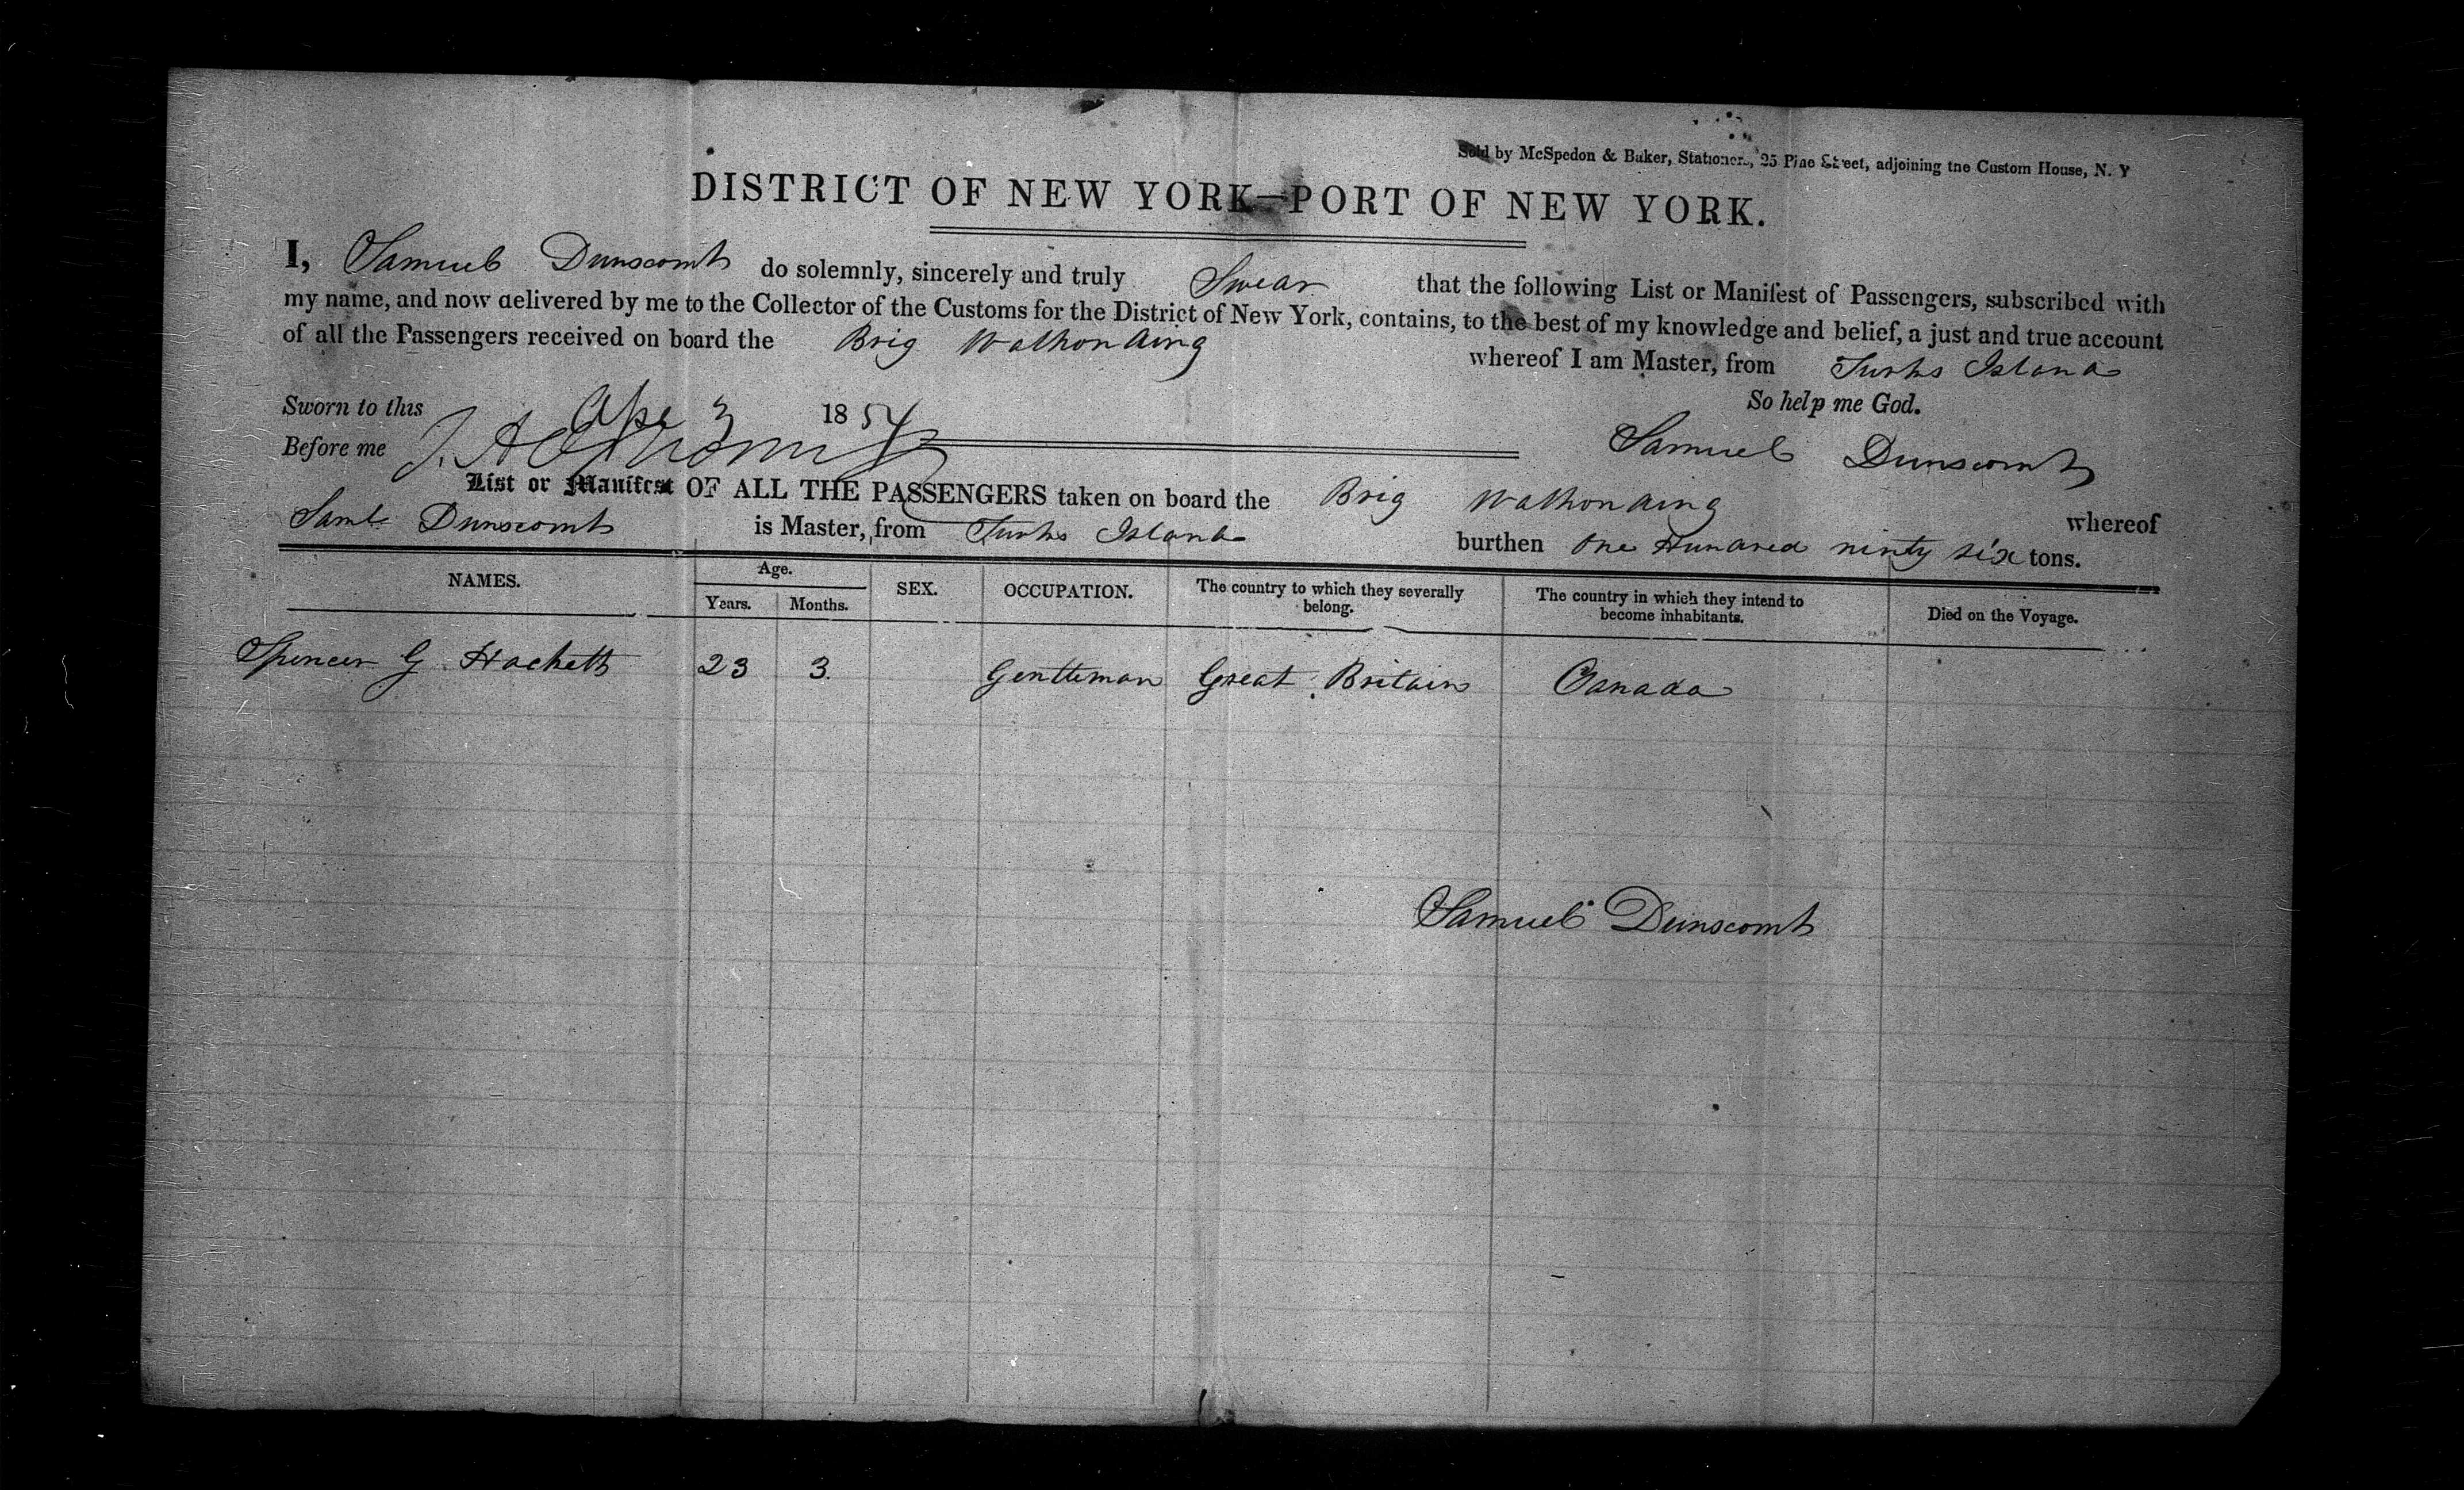 Sold by McSpedon & Baker, Stationers, 25 Pine Street, adjoining the Custom House, N. Y
DISTRICT OF NEW YORK—PORT OF NEW YORK.
I, Samuel Dunscomb do solemnly, sincerely and truly Swear that the following List or Manifest of Passengers, subscribed with
my name, and now delivered by me to the Collector of the Customs for the District of New York, contains, to the best of my knowledge and belief, a just and true account
of all the Passengers received on board the Brig Walhonding whereof I am Master, from Turks Island
So help me God.
Sworn to this Apr 3 1854
Before me
Samuel Dunscomb
List or Manifest OF ALL THE PASSENGERS taken on board the Brig Walhonding whereof
Saml Dunscomb is Master, from Turks Island burthen One Hundred ninty six tons.
NAMES. Age. Years. Months. SEX. OCCUPATION. The country to which they severally belong. The country in which they intend to become inhabitants. Died on the Voyage.
Spencer G Hackett 23 3 Gentleman Great Britain Canada
Samuel Dunscomb